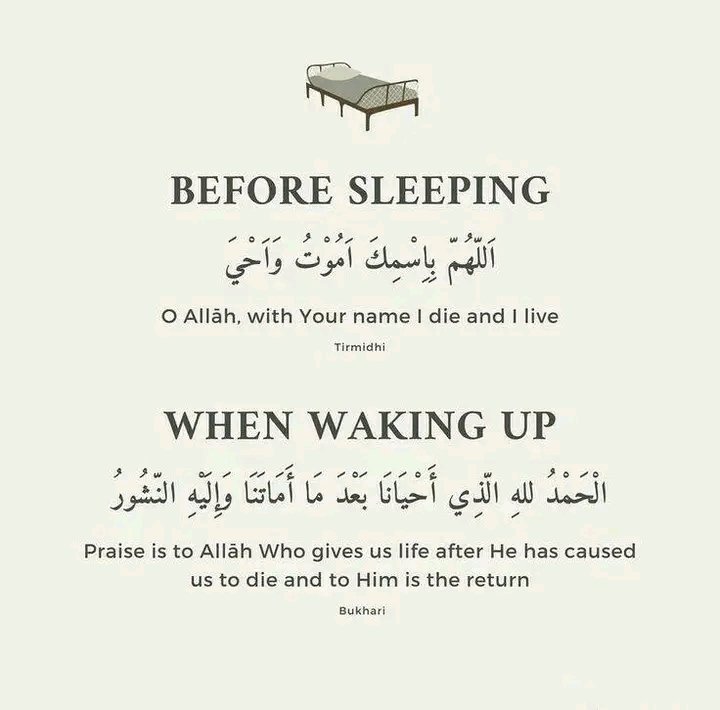 BEFORE SLEEPING
اَللّٰهُمَّ بِاِسْمِكَ اَمُوْتُ وَاَحْيَ
O Allāh, with Your name I die and I live
Tirmidhi
WHEN WAKING UP
الْحَمْدُ للهِ الَّذِي أَحْيَانَا بَعْدَ مَا أَمَاتَنَا وَإِلَيْهِ النَّشُورُ
Praise is to Allāh Who gives us life after He has caused
us to die and to Him is the return
Bukhari